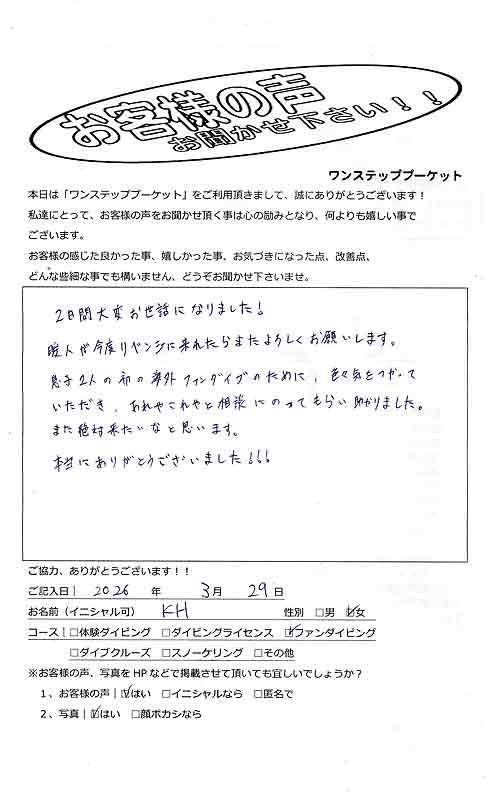 お客様の声
お聞かせ下さい！！
ワンステッププーケット
本日は「ワンステッププーケット」をご利用頂きまして、誠にありがとうございます！
私達にとって、お客様の声をお聞かせ頂く事は心の励みとなり、何よりも嬉しい事で
ございます。
お客様の感じた良かった事、嬉しかった事、お気づきになった点、改善点、
どんな些細な事でも構いません、どうぞお聞かせ下さいませ。
2日間大変お世話になりました！
暖人が今度リベンジに来れたらまたよろしくお願いします。
息子2人の初の海外ファンダイブのために、色々気をつかって
いただき、あれやこれやと相談にのってもらい助かりました。
また絶対来たいなと思います。
本当にありがとうございました!!!
ご協力、ありがとうございます！！
ご記入日| 2026 年 3月 29日
お名前（イニシャル可） KH 性別 □男 ☑女
コース|□体験ダイビング □ダイビングライセンス ☑ファンダイビング
□ダイブクルーズ □スノーケリング □その他
※お客様の声、写真を HP などで掲載させて頂いても宜しいでしょうか？
1、お客様の声|☑はい □イニシャルなら □匿名で
2、写真|☑はい □顔ボカシなら